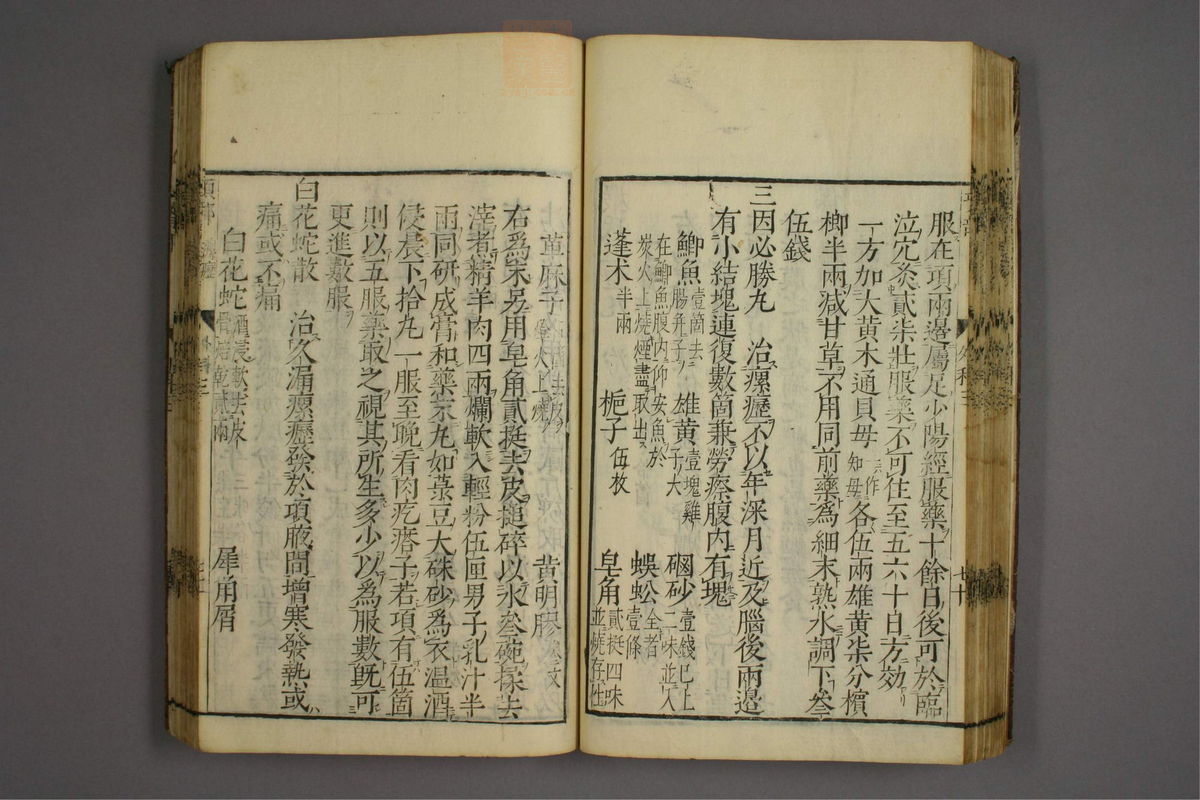 服在項兩邊屬足少陽經服藥十餘日後可於臨
泣穴灸貳柒壯服藥不可住至五六十日方効
一方加大黃木通貝母一作知母各伍兩雄黃柒分檳
榔半兩減甘草不用同前藥為細末熟水調下叁
伍錢
三因必勝丸 治瘰癧不以年深月近及腦後兩邊
有小結塊連復數箇兼勞瘵腹內有塊
鯽魚壹箇去腸并子 雄黃壹塊雞子大 硇砂壹錢已上二味並入
在鯽魚腹內仰安魚於炭火上燒煙盡取出 蜈蚣全者壹條
蓬术半兩 梔子伍枚 皂角貳挺四味並燒存性
萆麻子 黃明膠
右為末另用皂角貳挺去皮搥碎以水叁碗揉去
滓煮精羊肉四兩爛軟入輕粉伍匣男子乳汁半
兩同研成膏和藥末丸如菉豆大硃砂為衣温酒
侵晨下拾丸一服至晚看肉疙瘩子若項有伍箇
則以五服藥取之視其所生多少以為服數既可
更進數服
白花蛇散 治久漏瘰癧發於項腋間增寒發熱或
痛或不痛
白花蛇酒浸軟去皮骨焙乾貳兩 犀角屑